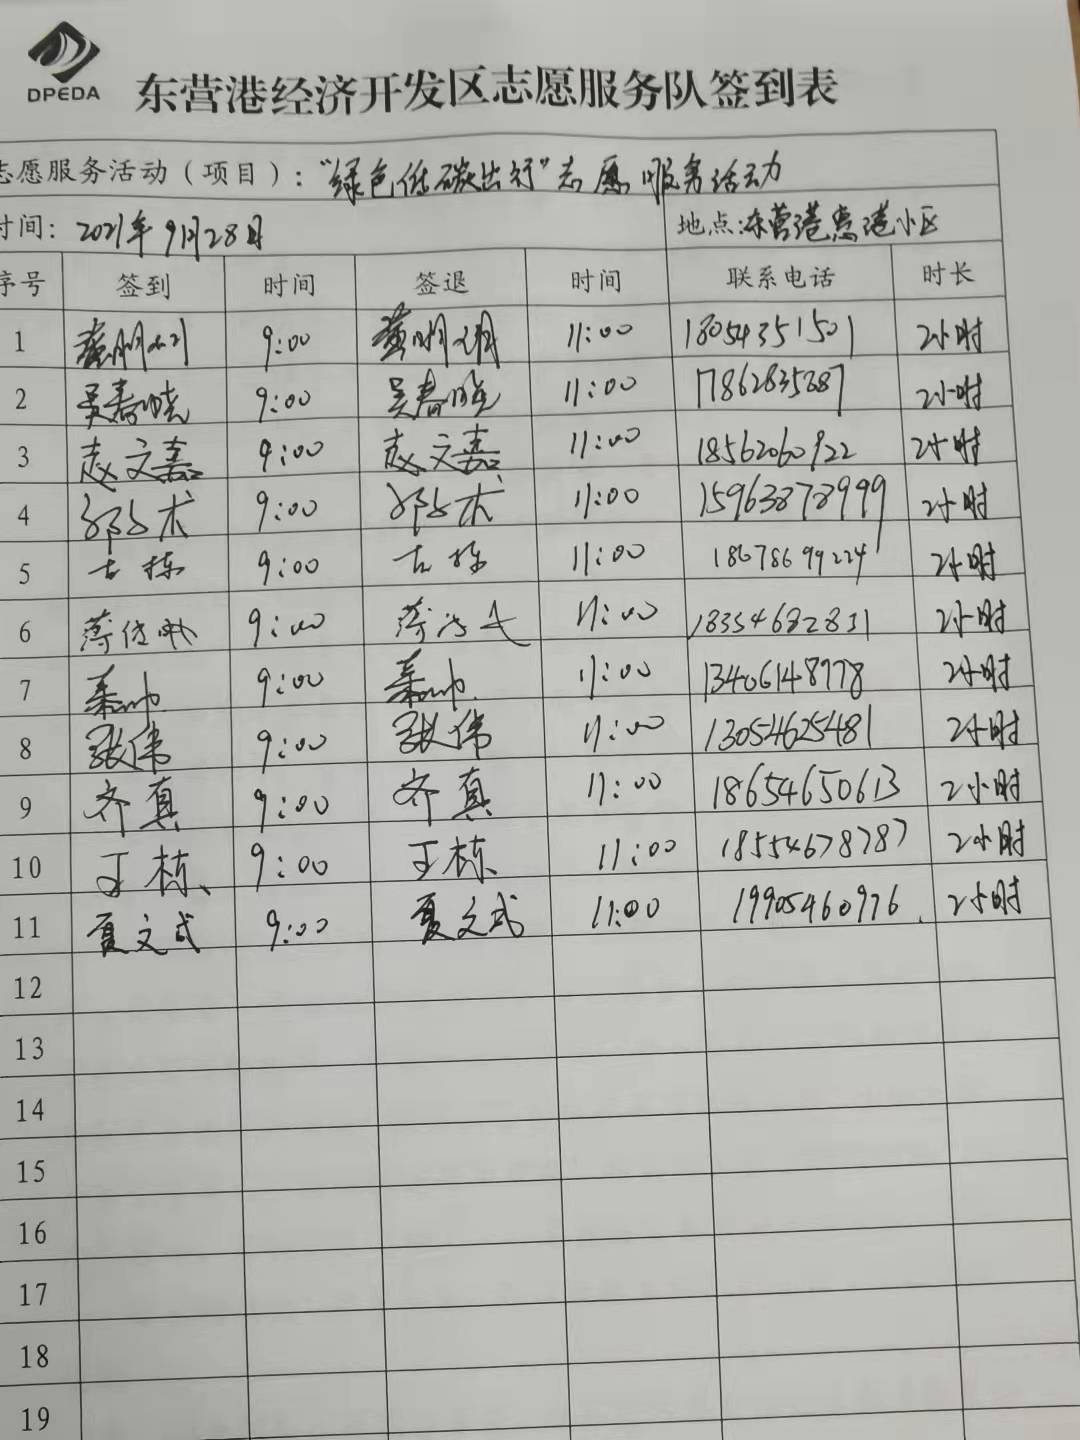 DPEDA
东营港经济开发区志愿服务队签到表
志愿服务活动(项目):"绿色低碳出行"志愿服务活动
时间: 2021年9月28日 地点:东营港惠港小区
序号 签到 时间 签退 时间 联系电话 时长
1 9:00 11:00 18054351501 2小时
2 吴春晓 9:00 吴春晓 11:00 17862835887 2小时
3 赵文嘉 9:00 赵文嘉 11:00 18562060922 2小时
4 9:00 11:00 15963878999 2小时
5 古栋 9:00 古栋 11:00 18678699224 2小时
6 9:00 11:00 18354682831 2小时
7 9:00 11:00 13406148978 2小时
8 张伟 9:00 张伟 11:00 13054625481 2小时
9 齐真 9:00 齐真 11:00 18654650613 2小时
10 王栋 9:00 王栋 11:00 18554678787 2小时
11 夏文武 9:00 夏文武 11:00 19905460976 2小时
12
13
14
15
16
17
18
19